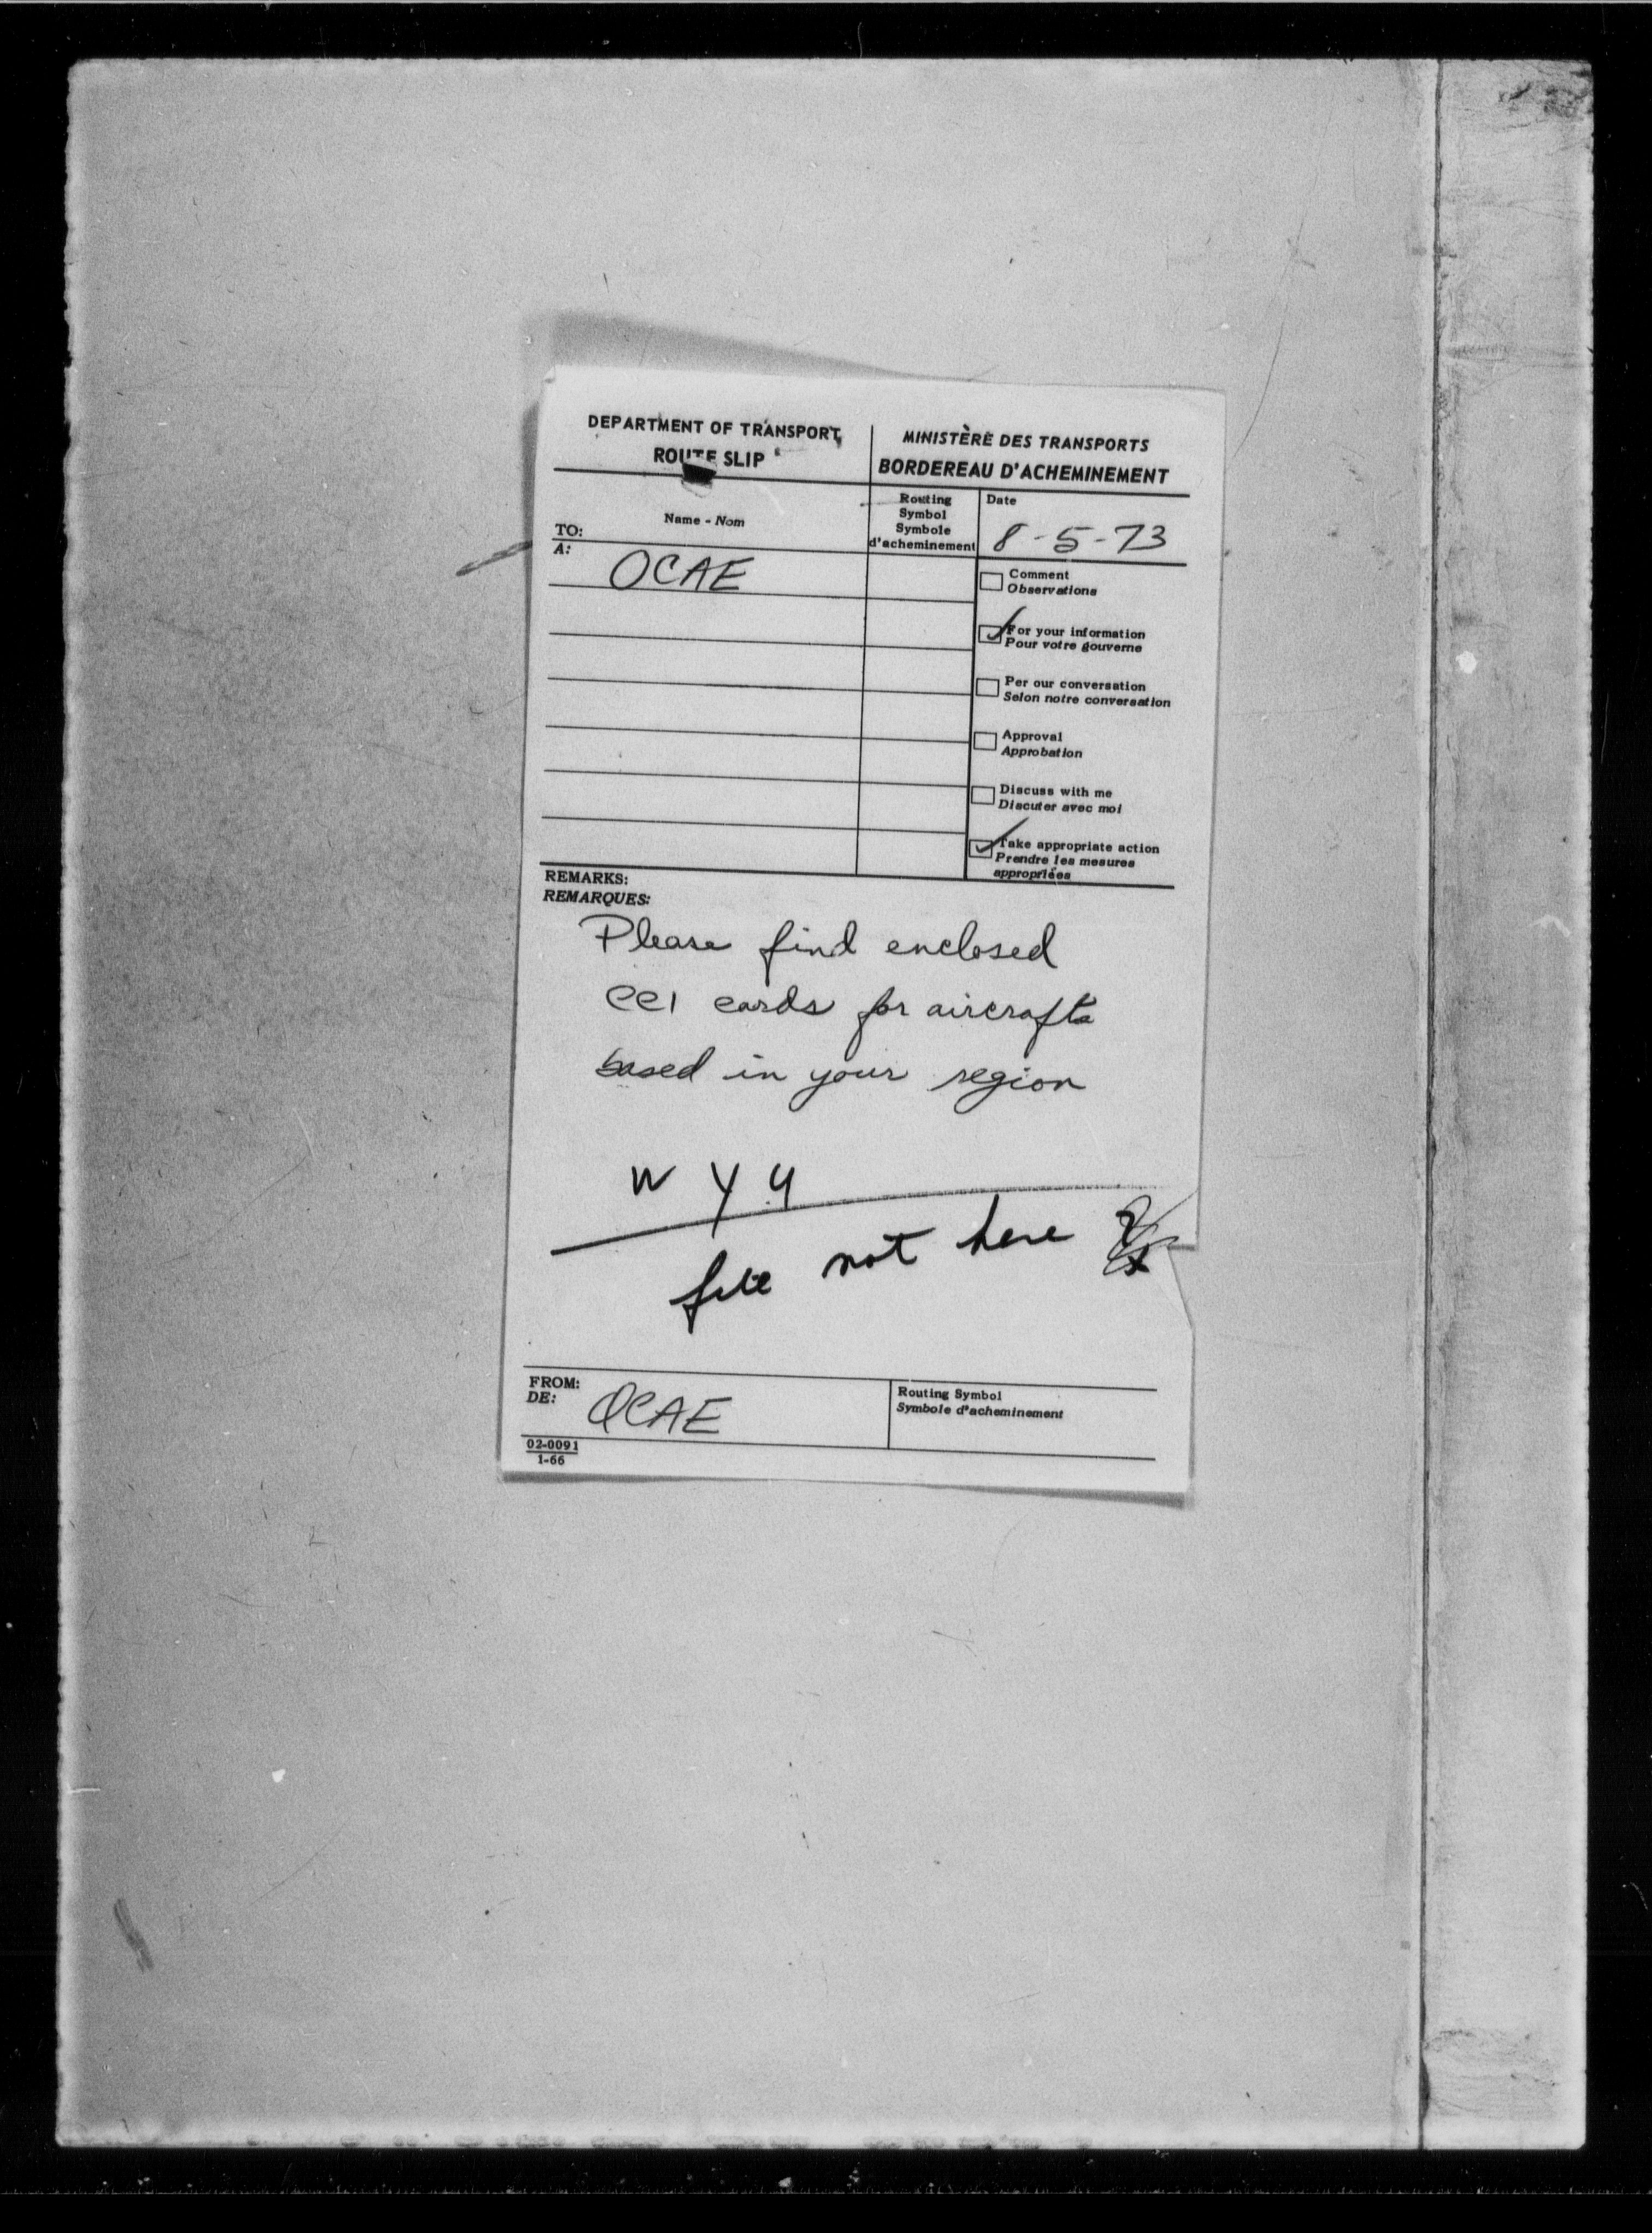 DEPARTMENT OF TRANSPORT
ROUTE SLIP
MINISTÈRE DES TRANSPORTS
BORDEREAU D'ACHEMINEMENT
TO:
A:
Name - Nom
Routing
Symbol
Symbole
d'acheminement
Date
8-5-73
OCAE
Comment
Observations
For your information
Pour votre gouverne
Per our conversation
Selon notre conversation
Approval
Approbation
Discuss with me
Discuter avec moi
Take appropriate action
Prendre les mesures
appropriées
REMARKS:
REMARQUES:
Please find enclosed
CCI cards for aircrafts
based in your region
W Y Y
file not here
FROM:
DE:
QCAE
Routing Symbol
Symbole d'acheminement
02-0091
1-66